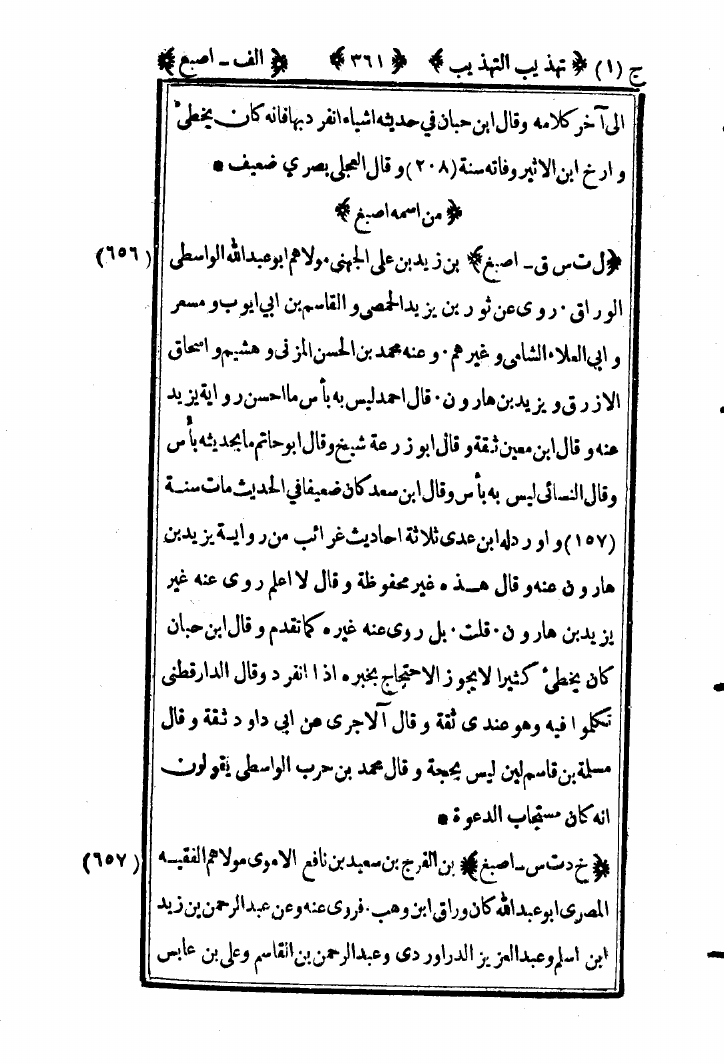 ج (١) ﴿ تهذيب التهذيب ﴾ ﴿ ٣٦١ ﴾ ﴿ الف - اصبغ ﴾
الى آخر كلامه وقال ابن حبان في حديثه اشياء انفرد بها فانه كان يخطئ
وارخ ابن الاثير وفاته سنة (٢٠٨) وقال العجلي بصري ضعيف •
﴿ من اسمه اصبغ ﴾
(٦٥٦) ﴿ ل ت س ق - اصبغ ﴾ بن زيد بن علي الجهني مولاهم ابو عبد الله الواسطي
الوراق · روى عن ثور بن يزيد الحمصي و القاسم بن ابي ايوب و مسعر
و ابي العلاء الشامي و غيرهم · و عنه محمد بن الحسن المزني و هشيم و اسحاق
الازرق و يزيد بن هارون · قال احمد ليس به بأس ما احسن رواية يزيد
عنه و قال ابن معين ثقة و قال ابو زرعة شيخ وقال ابو حاتم ما بحديثه بأس
وقال النسائى ليس به بأس وقال ابن سعد كان ضعيفا في الحديث مات سنة
(١٥٧) و اورد له ابن عدى ثلاثة احاديث غرائب من رواية يزيد بن
هارون عنه و قال هذه غير محفوظة و قال لا اعلم روى عنه غير
يزيد بن هارون · قلت · بل روى عنه غيره كما تقدم و قال ابن حبان
كان يخطئ كثيرا لا يجوز الاحتجاج بخبره اذا انفرد وقال الدارقطنى
تكلموا فيه وهو عندى ثقة و قال الآجرى عن ابي داود ثقة و قال
مسلمة بن قاسم لين ليس بحجة و قال محمد بن حرب الواسطى يقولون
انه كان مستجاب الدعوة •
(٦٥٧) ﴿ خ د ت س - اصبغ ﴾ بن الفرج بن سعيد بن نافع الاموى مولاهم الفقيه
المصرى ابو عبد الله كان وراق ابن وهب · فروى عنه وعن عبد الرحمن بن زيد
ابن اسلم و عبد العزيز الدراوردى و عبد الرحمن بن القاسم وعلى بن عابس